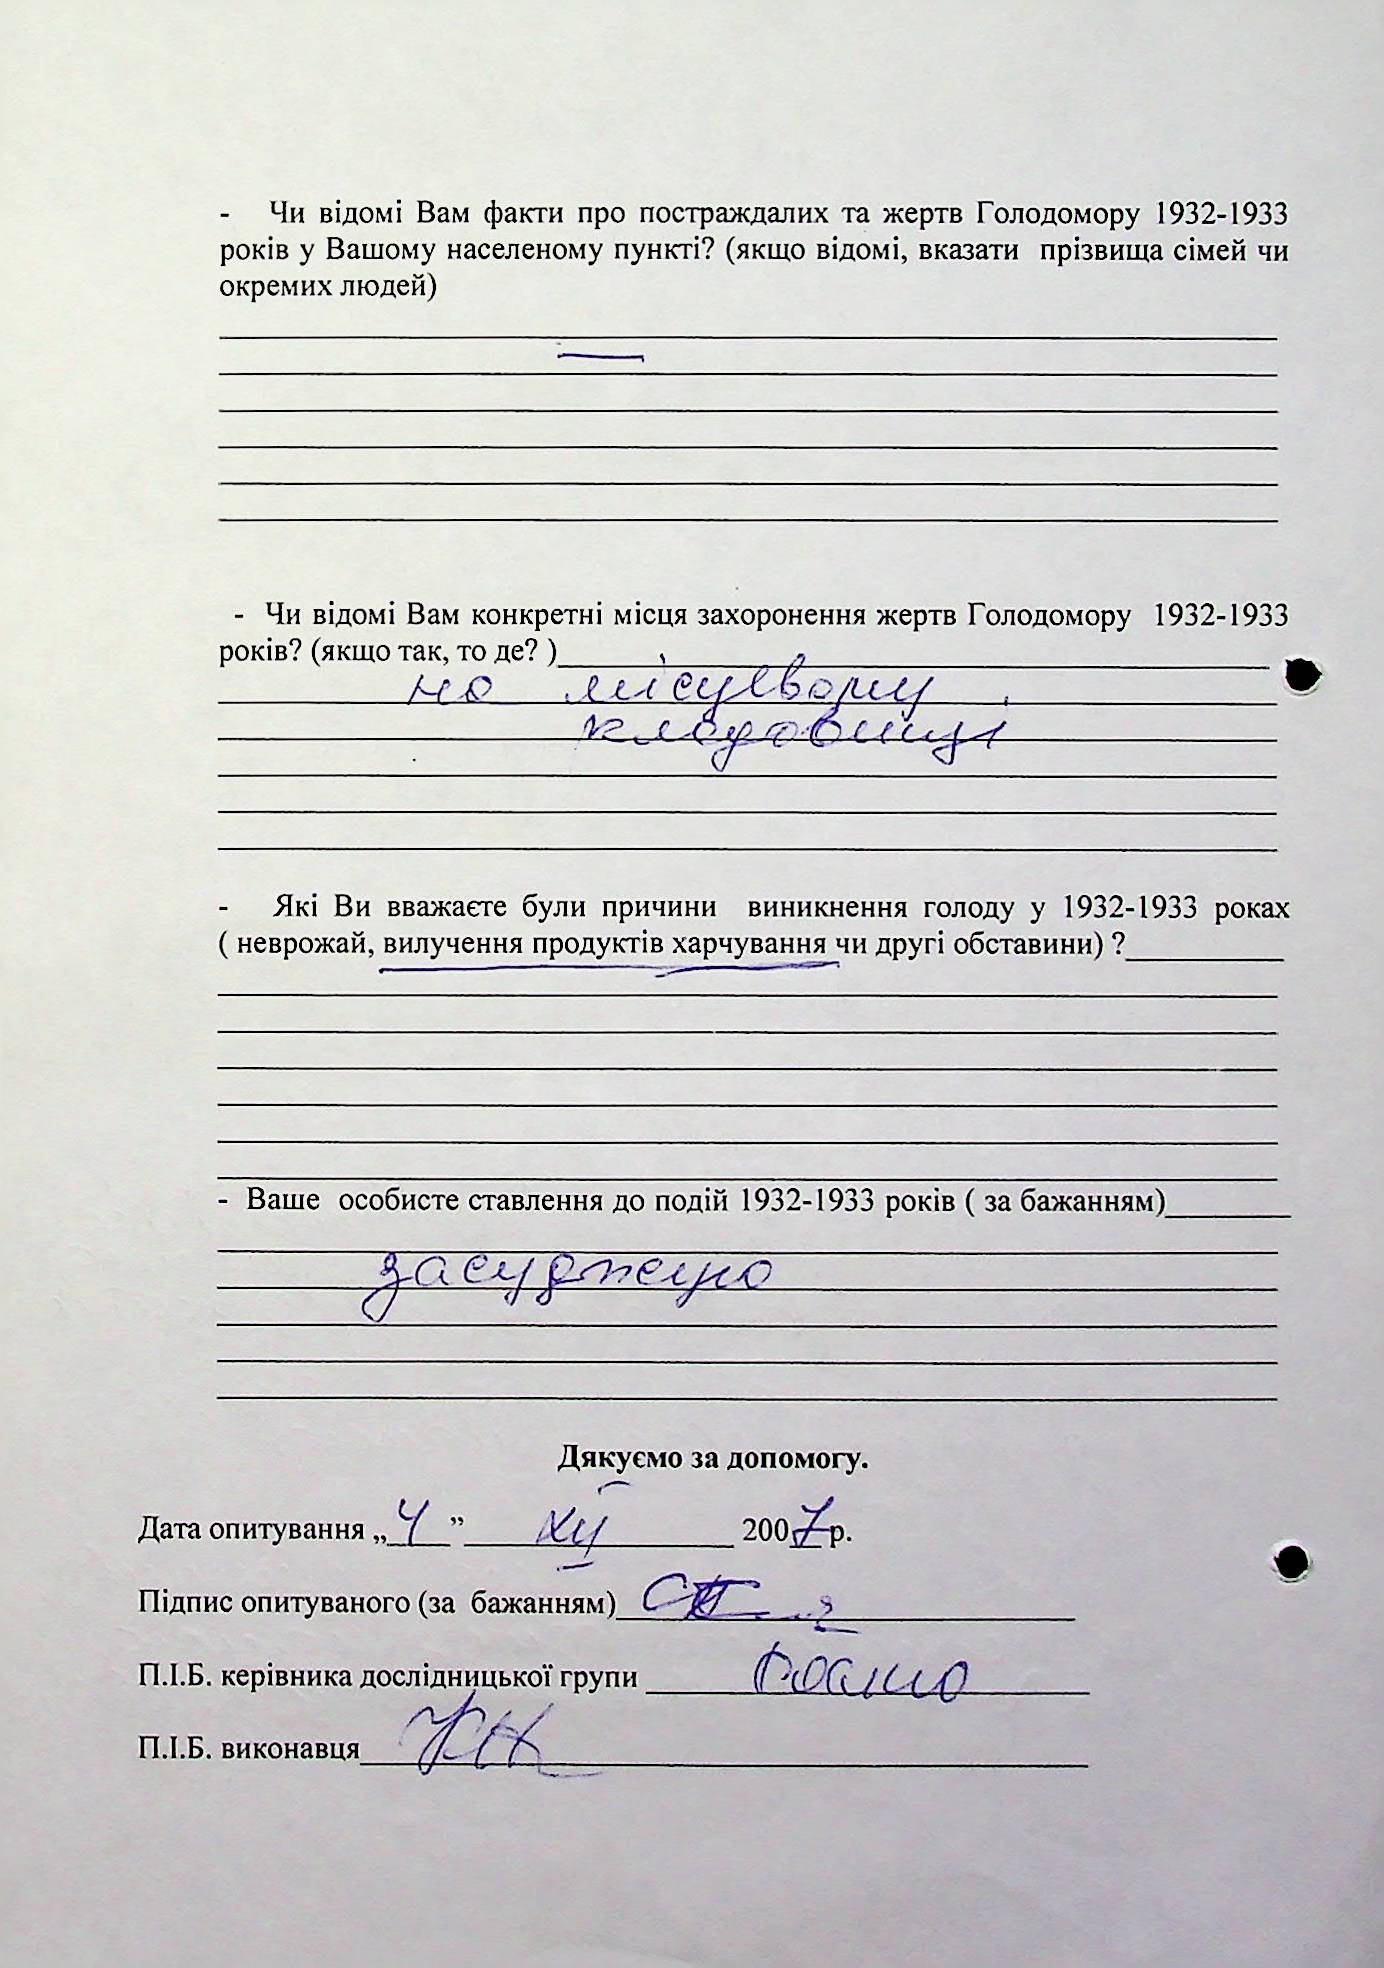 - Чи відомі Вам факти про постраждалих та жертв Голодомору 1932-1933
років у Вашому населеному пункті? (якщо відомі, вказати прізвища сімей чи
окремих людей)
—
- Чи відомі Вам конкретні місця захоронення жертв Голодомору 1932-1933
років? (якщо так, то де? )
на місцевому
кладовищі
- Які Ви вважаєте були причини виникнення голоду у 1932-1933 роках
( неврожай, вилучення продуктів харчування чи другі обставини) ?
- Ваше особисте ставлення до подій 1932-1933 років ( за бажанням)
засуджую
Дякуємо за допомогу.
Дата опитування „4” XII 2007р.
Підпис опитуваного (за бажанням)
П.І.Б. керівника дослідницької групи
П.І.Б. виконавця